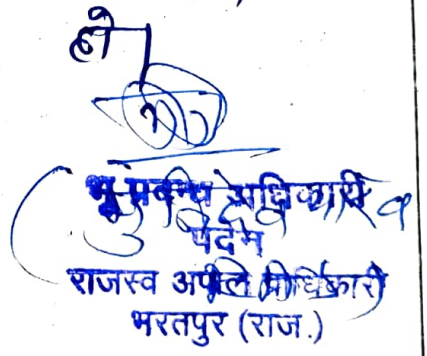 हो।
भू प्रबन्ध अधिकारी
पदेन
राजस्व अपील अधिकारी
भरतपुर (राज.)